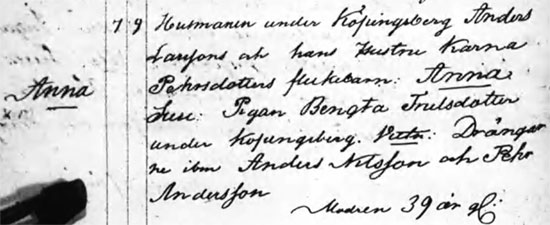 7 9 Husmanen under Köpingsberg Anders
Larssons och hans Hustru Karna
Pehrsdotters flickebarn: Anna.
Anna
Susc: Pigan Bengta Truelsdotter
under Kopingsberg. Vittn: Drängar
ne ibm Anders Nilsson och Pehr
Andersson
Modren 39 år gl: